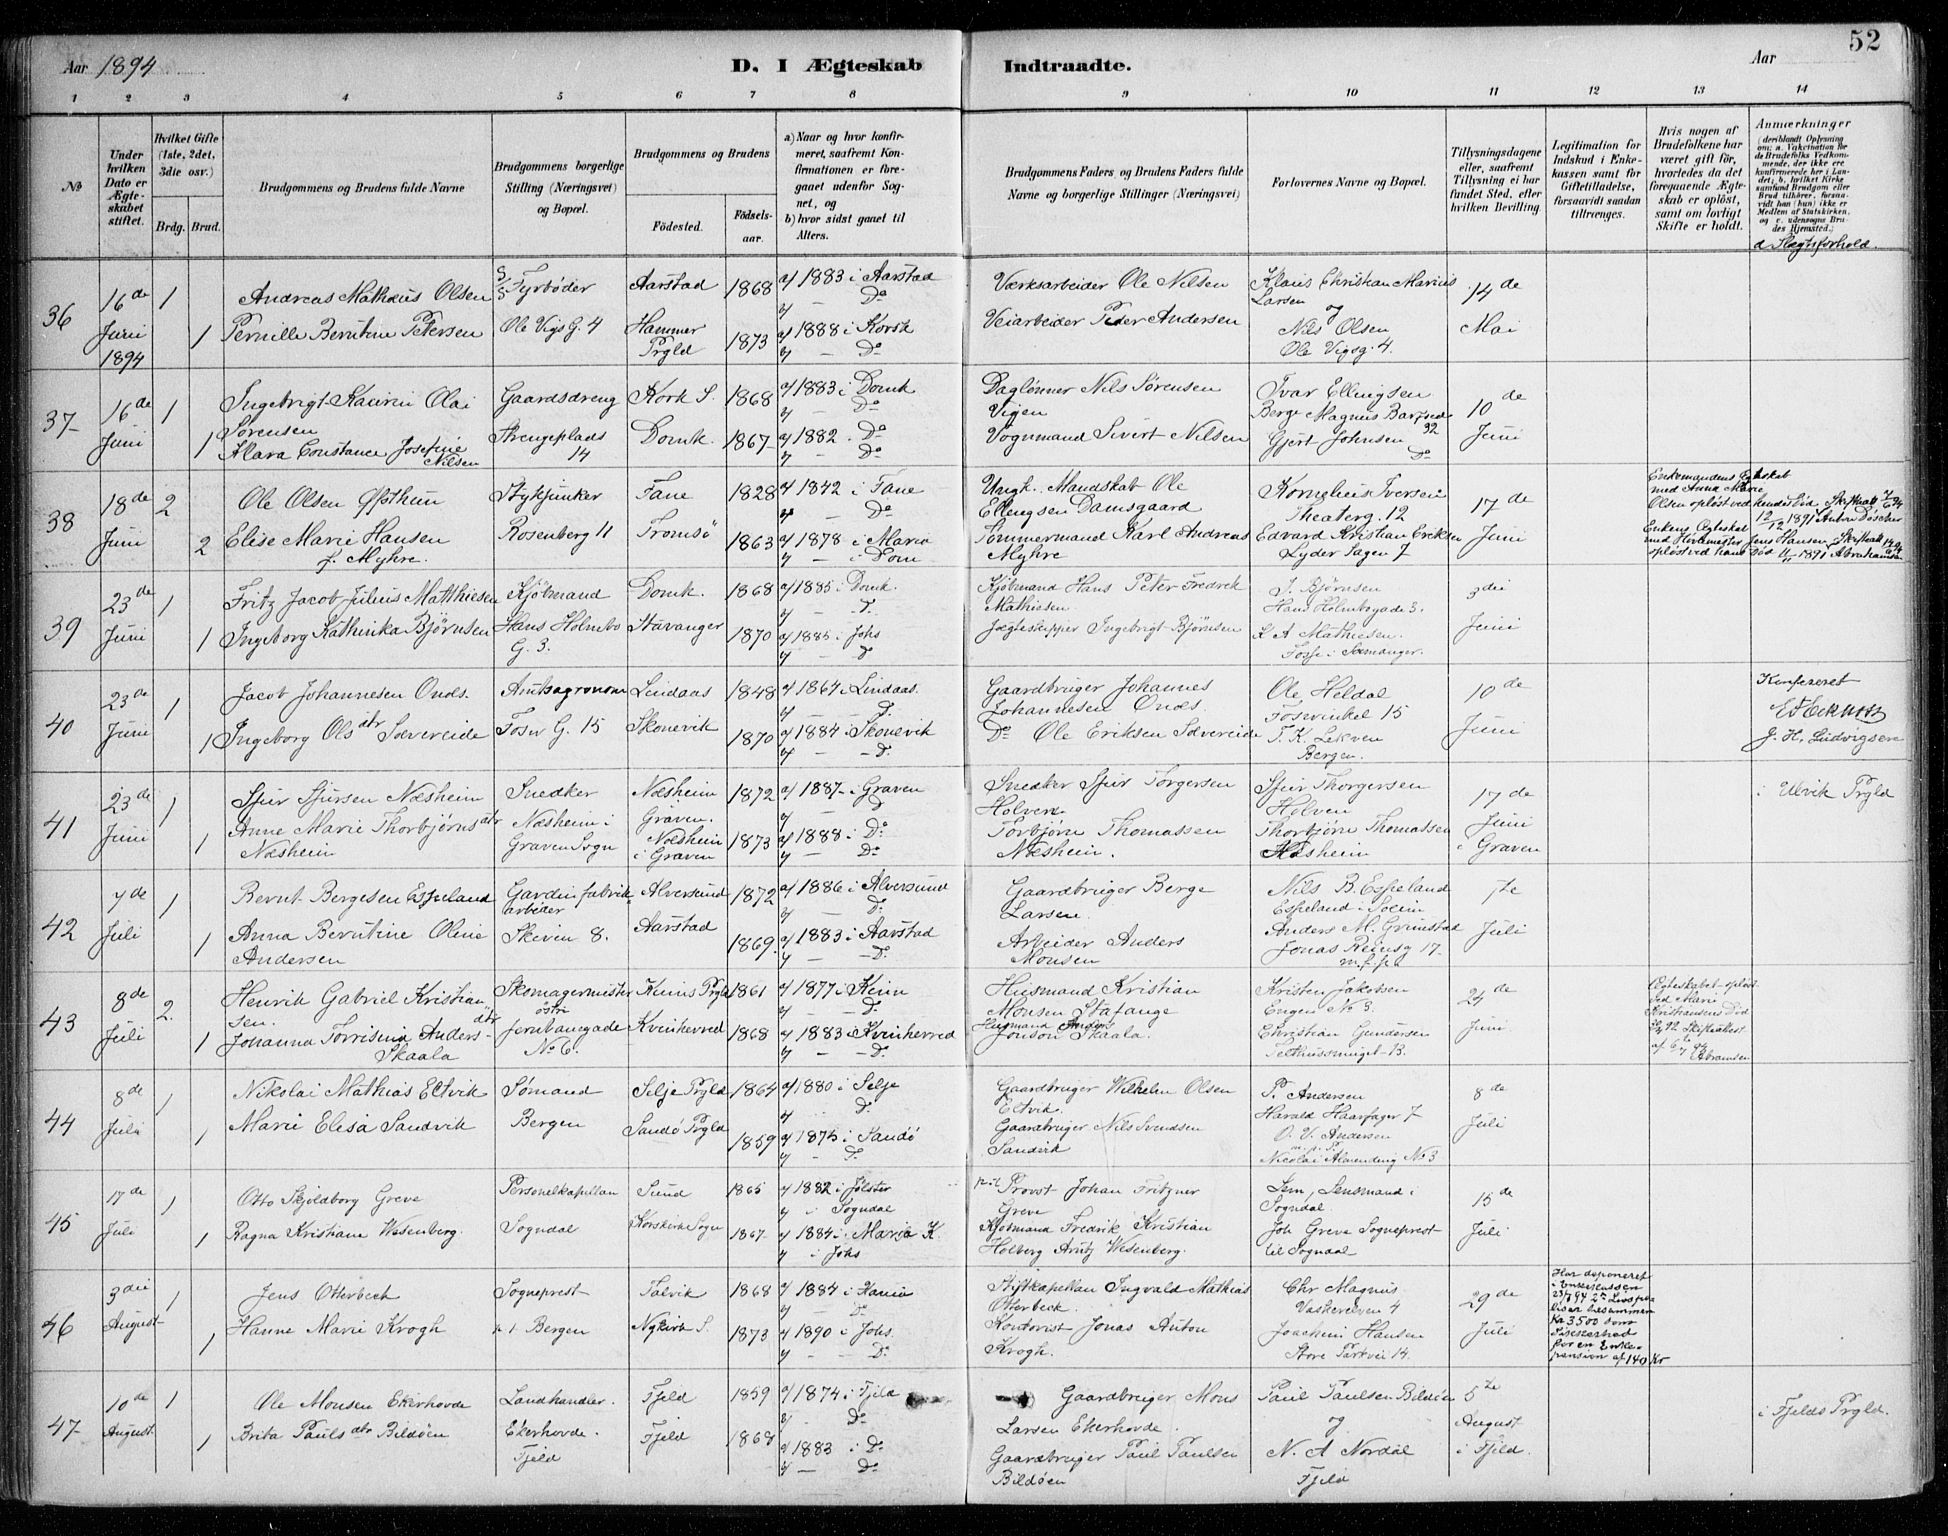 52
Aar 1894
D. I Ægteskab Indtraadte.
Aar
1 2 3 4 5 6 7 8 9 10 11 12 13 14
No
Under hvilken Dato er Ægteskabet stiftet.
Hvilket Gifte (1ste, 2det, 3die osv.)
Brdg. Brud.
Brudgommens og Brudens fulde Navne
Brudgommens borgerlige Stilling (Næringsvei) og Bopæl.
Brudgommens og Brudens
Födested.
Födselsaar.
a) Naar og hvor konfirmeret, saafremt Konfirmationen er foregaaet udenför Sognet, og
b) hvor sidst gaaet til Alters.
Brudgommens Faders og Brudens Faders fulde Navne og borgerlige Stillinger (Næringsvei)
Forlovernes Navne og Bopæl.
Tillysningsdagene eller, saafremt Tillysning ei har fundet Sted, efter hvilken Bevilling.
Legitimation for Indskud i Enkekassen samt för Giftetilladelse, forsaavidt saadan tiltrænges.
Hvis nogen af Brudefolkene har været gift för, hvorledes da det foregaaende Ægteskab er oplöst, samt om lovligt Skifte er holdt.
Anmerkninger (deriblandt Oplysning om: a. Vakcination for de Brudefolks Vedkommende, der ikke ere konfirmerede her i Landet; b. hvilket Kirkesamfund Brudgom eller Brud tilhører, forsaavidt han (hun) ikke er Medlem af Statskirken, og c. udensogns Brudes Hjemsted.;
d Slægtsforhold.
36
16de Juni 1894
1
1
Andreas Mathæus Olsen
Pernille Berntine Petersen
S/S Fyrbøder
Ole Vigs G. 4
Aarstad
Hammer Prgld
1868
1873
a/ 1883 i Aarstad
b/ — Do
a/ 1888 i Korsk
b/ — Do
Værksarbeider Ole Nilsen
Veiarbeider Peder Andersen
Klaus Christian Marius Larsen
og
Nils Olsen
Ole Vigsg. 4.
14de Mai
37
16de Juni
1
1
Ingebrigt Laurin Olai Sørensen
Klara Constance Josefine Nilsen
Gaardsdreng
Strengeplads 14
Kork S.
Domk.
1868
1867
a/ 1883 i Domk
b/ — Do
a/ 1882 - Do
b/ — Do
Daglønner Nils Sørensen Vigen
Vognmand Sivert Nilsen
Ivar Ellingsen
Berge Magnus Barfsed 32
Gjert Johnsen Do
10de Juni
38
18de Juni
2
2
Ole Olsen Øpsthun
Elise Marie Hansen
f. Myhre.
Stykjunker
Rosenberg 11
Fane
Tromsø
1828
1863
a/ 1842 i Fane
b/ — Do
a/ 1878 i Maria
b/ — i Dom
Ungk. Mandskab Ole Ellingsen Damsgaard
Tømmermand Karl Andreas Myhre
Kornelius Iversen
Theaterg. 12
Edvard Kristian Eriksen
Lyder Sagen 7
17de Juni
Enkemandens Egteskab
med Anna Marie
Olsen opløst ved hendes Død
12/12 1891
Enkens Egteskab
med Hovmester Jens Hansen
opløst ved hans Død 1891
39
23de Juni
1
1
Fritz Jacob Julius Matthiesen
Ingeborg Kathinka Bjørnsen
Kjøbmand
Hans Holmbo G. 3.
Domk.
Stavanger
1868
1870
a/ 1885 i Domk.
b/ — D.
a/ 1885 i Johs
b/ — D
Kjøbmand Hans Peter Fredrek Mathiesen.
Jægteskipper Ingebrigt Bjørnsen
J. Bjørnsen
Hans Holmbogade 3.
L A Mathiesen.
Fosse i Samnanger.
3die Juni
40
23de Juni
1
1
Jacob Johannesen Onds.
Ingeborg Olsdtr Sævereide
Amtsagronom
Fosw G. 15
Lindaas
Skonevik
1848
1870
a/ 1864 i Lindaas.
b/ — D.
a/ 1884 i Skonevik
b/ — D.
Gaardbruger Johannes Johannesen Onds.
Do Ole Eriksen Sævereide
Ole Heldal
Foswinkel 15
T. K. Lekven
Bergen.
10de Juni
Konfereret
J. H. Ludvigsen
41
23de Juni
1
1
Sjur Sjursen Næsheim
Anne Marie Thorbjørnsdtr Næsheim
Snedker
Næsheim i Graven Sogn
Næsheim Graven.
Næsheim i Graven
1872
1873
a/ 1887 i Graven
b/ — D
a/ 1888 i Do
b/ — Do
Snedker Sjur Torgersen Holven.
Torbjørn Thomassen Næsheim.
Sjur Thorgersen Holven
Thorbjørn Thomassen Næsheim
17de Juni
i Graven
i Ulvik Prgld
42
7de Juli
1
1
Bernt Bergesen Espeland
Anna Berntine Oline Andersen
Gardinfabrikarbeider
Skiven 8.
Alversund
Aarstad
1872
1869.
a/ 1886 i Alversund
b/ — D.
a/ 1883 i Aarstad
b/ — D.
Gaardbruger Berge Larsen.
Arbeider Anders Monsen
Nils B. Espeland
Espeland i Solein
Anders M. Grimstad
Jonas Reinsg 17.
m. f. p.
7de Juli
43
8de Juli
2.
1
Henrik Gabriel Kristiansen.
Johanna Torrisina Andersdtr Skaala
Skomagermester
østre Jernbanegade No 6.
Kinns Prgld
Kvinherred
1861
1868
a/ 1877 i Keim
b/ — D.
a/ 1883 i Kvinherred
b/ — D.
Husmand Kristian Monsen Stafange
Husmand Anders Jonson Skaala.
Kristen Jakobsen
Engen No 3.
Christian Gundersen
Telthussmuget 13.
24de Juni
Ægteskabet opløst
ved Marie
Kristiansens Død
44
8de Juli
1
1
Nikolai Mathias Ectvik
Marie Elisa Sandvik
Sømand
Bergen
Selje Prgld
Sandø Prgld
1864
1859
a/ 1880 i Selje
b/ — D.
a/ 1875 i Sandø
b/ — D.
Gaardbruger Wilhelm Olsen Ectvik.
Gaardbruger Nils Svendsen Sandvik
P. Andersen
Harald Haarfager 7
O. V. Andersen
m. p. P.
Nicolai Almending No 3
8de Juli
45
17de Juli
1
1
Otto Skjoldborg Greve
Ragna Kristiane Wesenberg.
Personelkapellan
Sogndal
Sund
Korskirke Sogn
1865
1867.
a/ 1882 i Jølster
b/ i Sogndal
a/ 1884 i Maria K.
b/ i Johs
Provst Johan Fritzner Greve
Kjøbmand Fredrik Kristian Holberg Arntz Wesenberg.
Lem, Lensmand i Sogndal.
Joh Greve Sogneprest til Sogndal
15de Juli
46
3die August
1
1
Jens Otterbech
Hanne Marie Krogh
Sogneprest
p. t Bergen
Talvik
Nykirk S.
1868
1873
a/ 1884 i Hamar
b/ — Do
a/ 1890 i Johs.
b/ — Do
Stiftkapellan Ingvald Mathias Otterbeck.
Kontorist Jonas Anton Krogh.
Chr Magnus
Vaskerelven 4
Joachim Hansen
Store Parkvei 14.
29de Juli
Har deponeret
i Enkekassen
23/7 94 2
Kr 3500 som
Sikkerhed
for en Enkepension af 140 Kr
47
10de August
1
1
Ole Monsen Ekerhovde
Brita Paulsdtr Bildøen
Landhandler.
Ekerhovde.
Fjeld
Fjeld
Fjeld
1859
1868
a/ 1874 i Fjeld
b/ — Do
a/ 1883 i Do
b/ — Do
Gaardbruger Mons Larsen Ekerhovde
Gaardbruger Paul Paulsen Bildøen
Paul Paulsen Bildøen
og
N. A Nordal
Fjeld
5te August
i Fjeld.
i Fjelds Prgld.